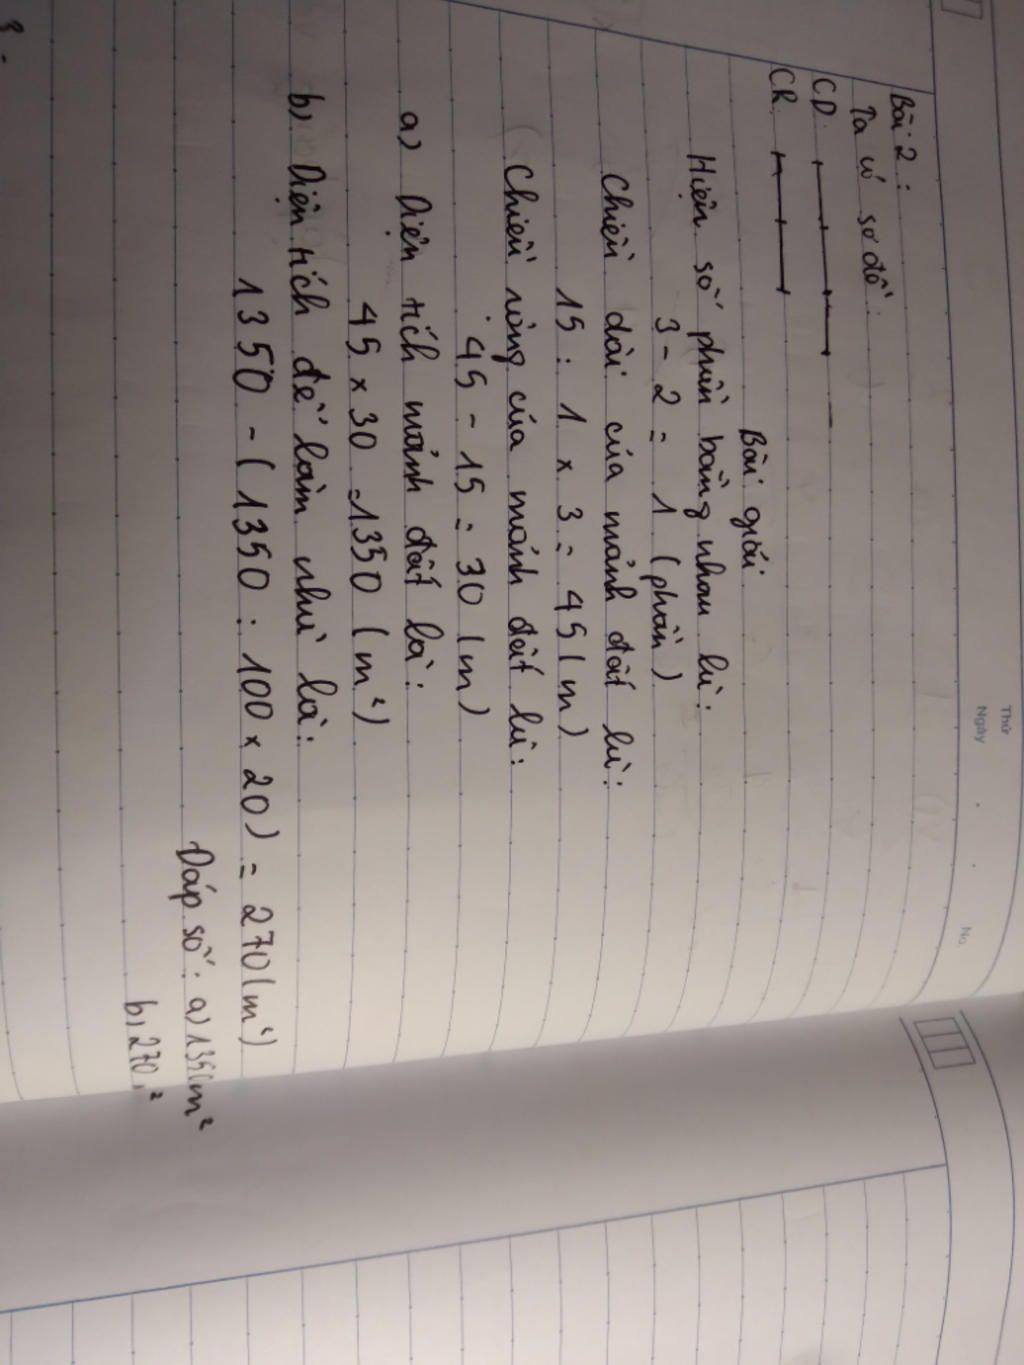 Thứ
Ngày
No.
Bài 2:
Ta có sơ đồ:
CD
CR
Bài giải
Hiện số phần bằng nhau là:
3 - 2 = 1 (phần)
Chiều dài của mảnh đất là:
15 : 1 x 3 = 45 (m)
Chiều rộng của mảnh đất là:
45 - 15 = 30 (m)
a) Diện tích mảnh đất là:
45 x 30 = 1350 (m²)
b) Diện tích để làm nhà là:
1350 - (1350 : 100 x 20) = 270 (m²)
Đáp số: a) 1350m²
b) 270m²
3.